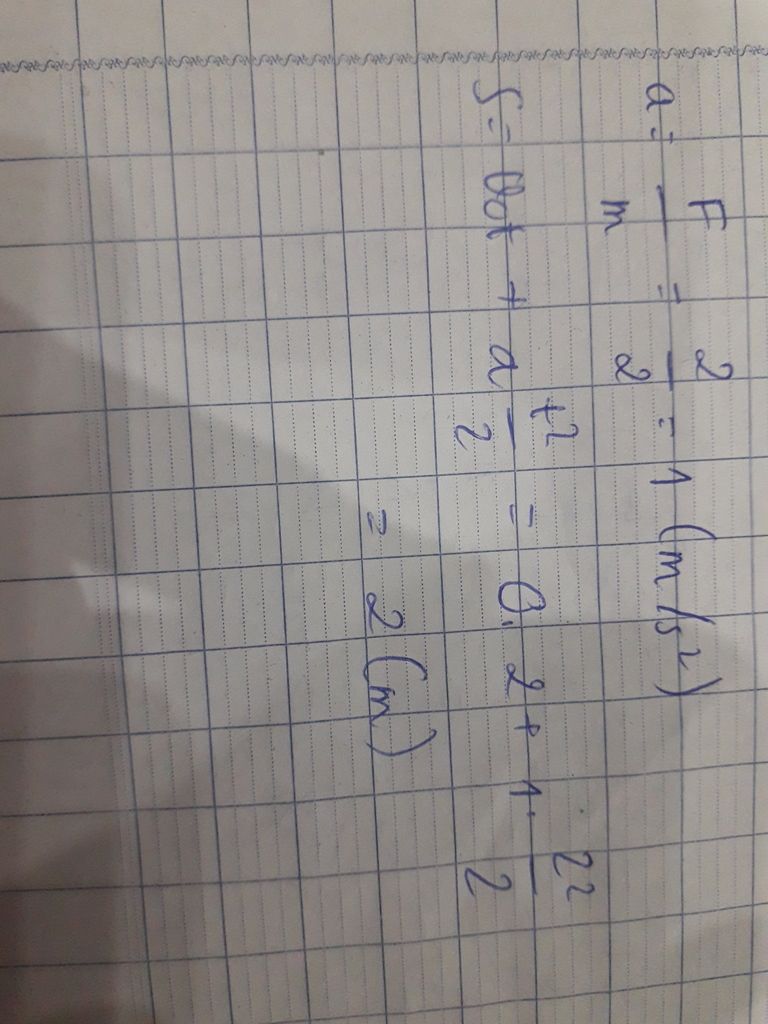 a = F/m = 2/2 = 1 (m/s²)
S = v₀t + a t²/2 = 0.2 + 1. 2²/2
= 2 (m)